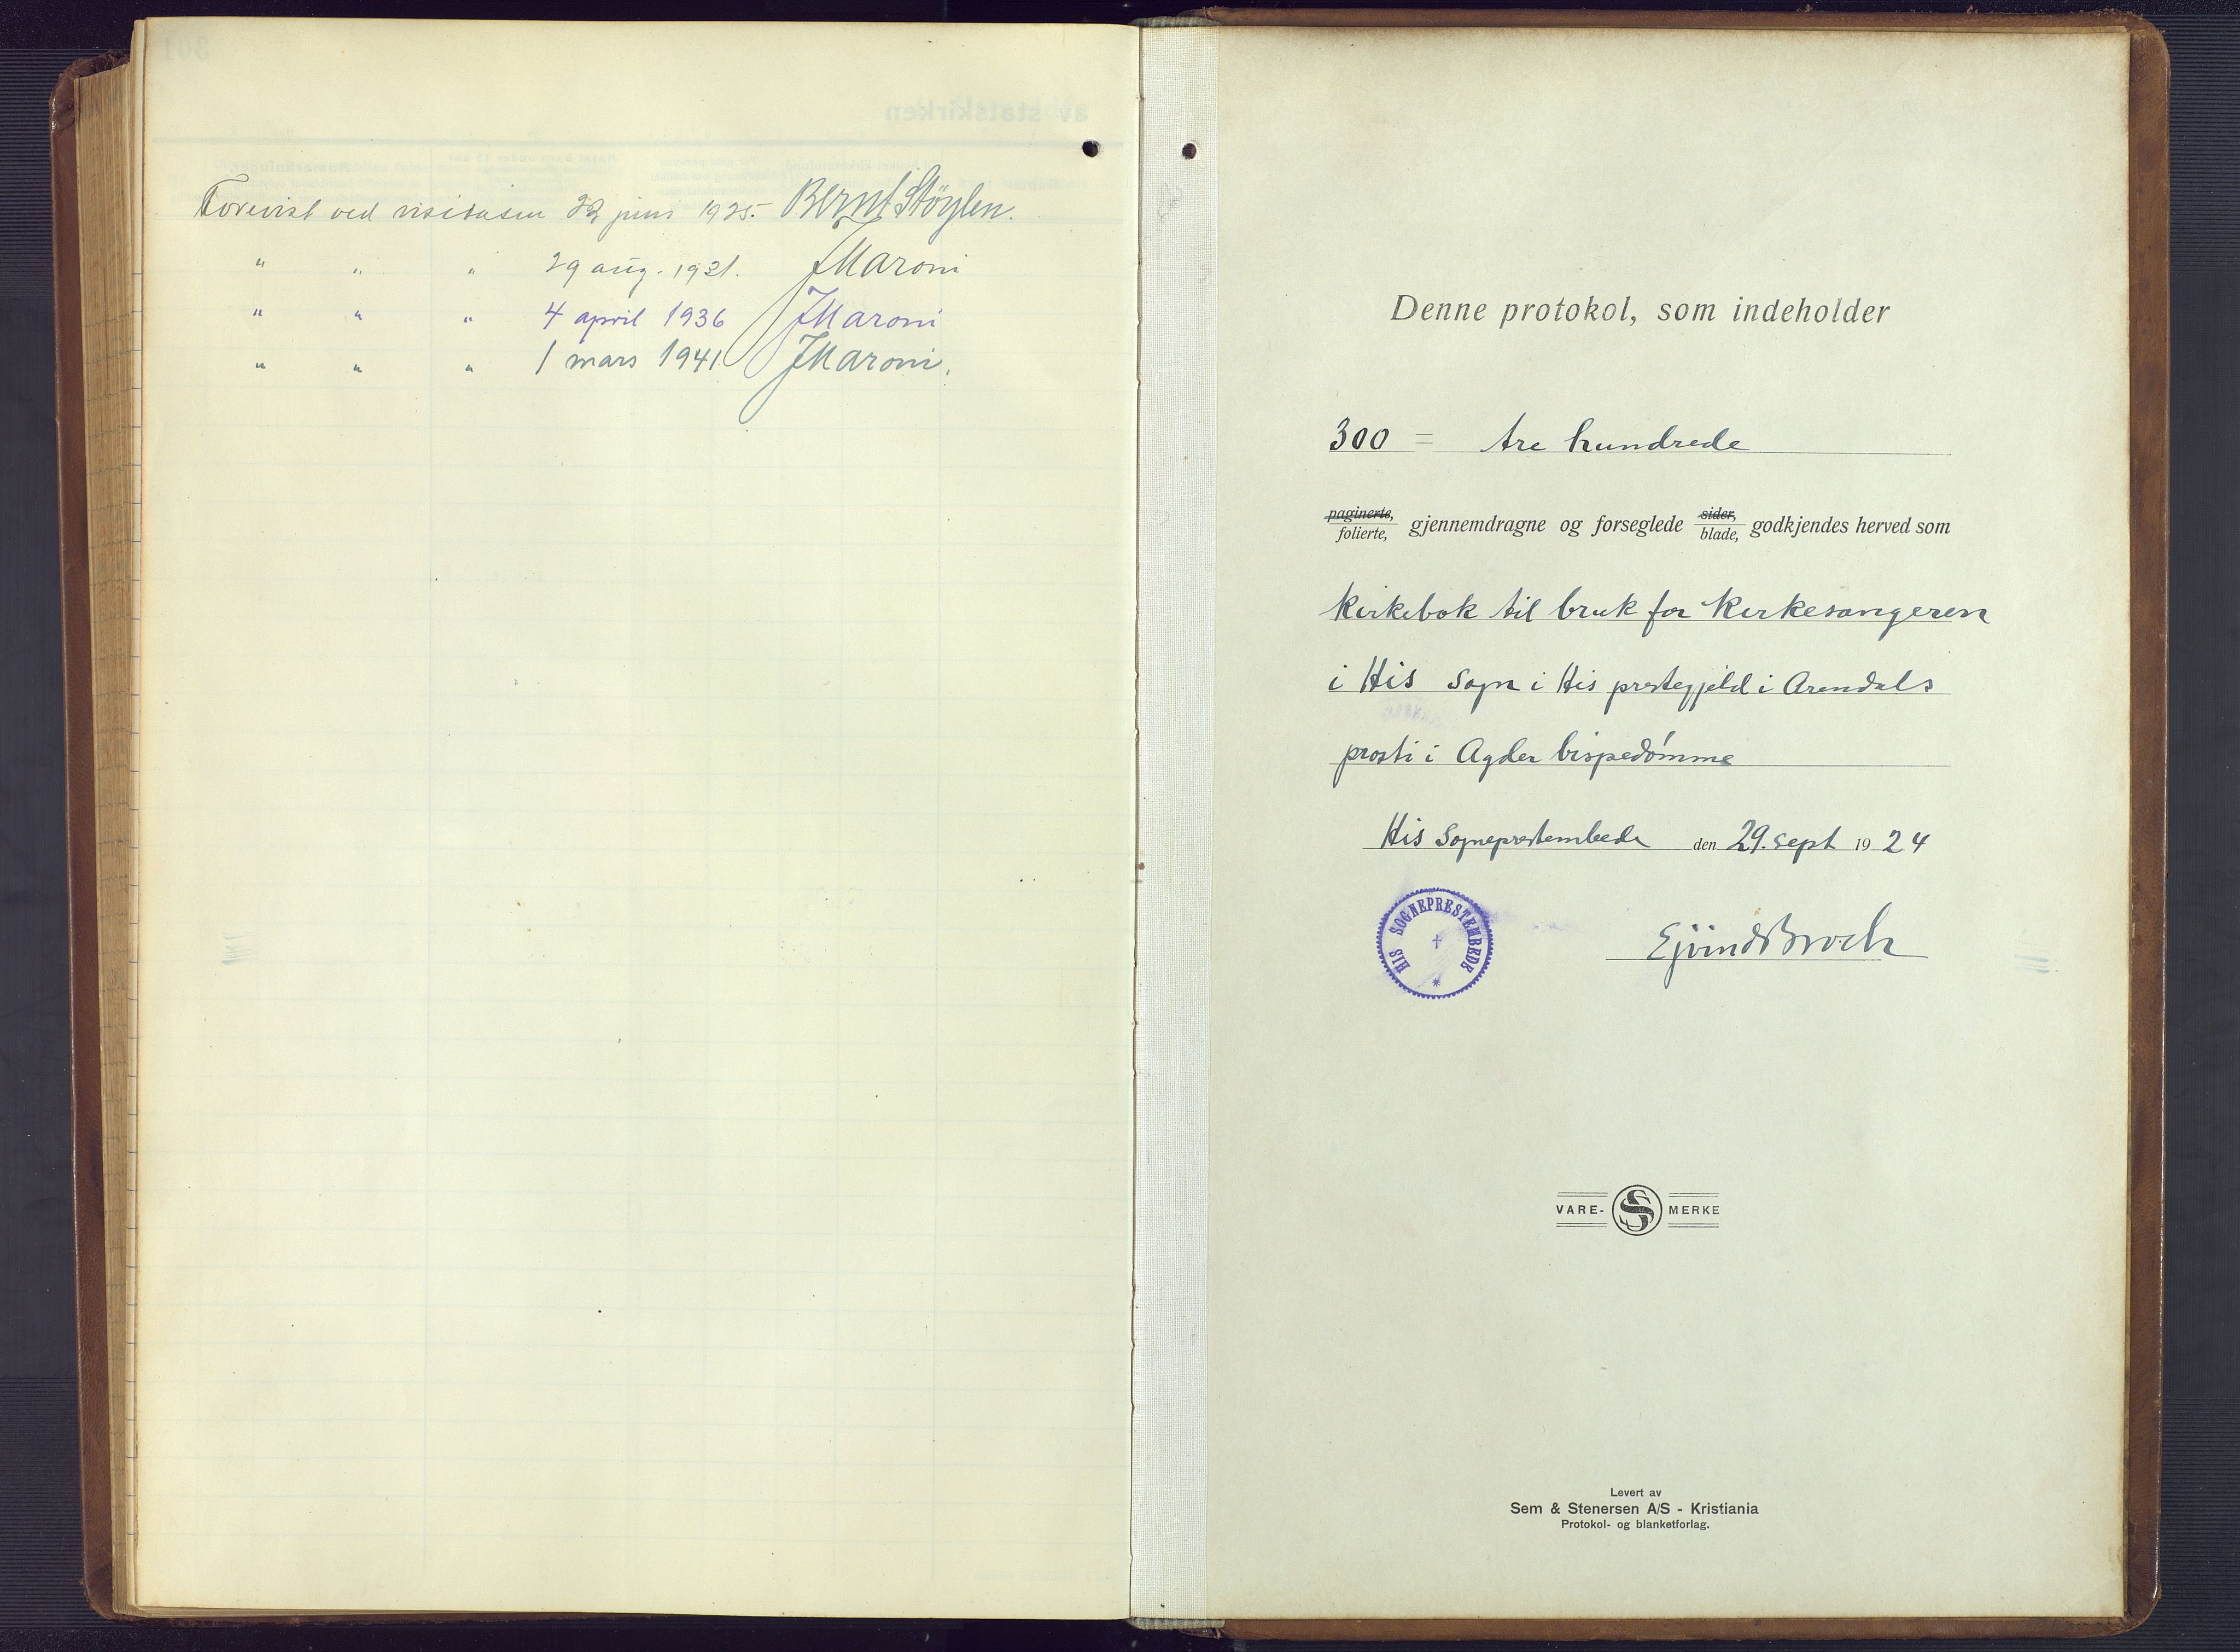 Forevist ved visitasen 22 juni 1925. Bernt Støylen.
" " " 29 aug. 1931. JMaroni
" " " 4 april 1936 JMaroni
" " " 1 mars 1941 JMaroni.
Denne protokol, som indeholder
300 = tre hundrede
paginerte, folierte, gjennemdragne og forseglede sider, blade, godkjendes herved som
kirkebok til bruk for Kirkesangeren
i His Sogn i His prestegjeld i Arendals
prosti i Agder bispedømme
His Sogneprestembede den 29. sept 1924
HIS SOGNEPRESTEMBEDE
Ejvind Broch
VARE- S MERKE
Levert av
Sem & Stenersen A/S - Kristiania
Protokol- og blanketforlag.